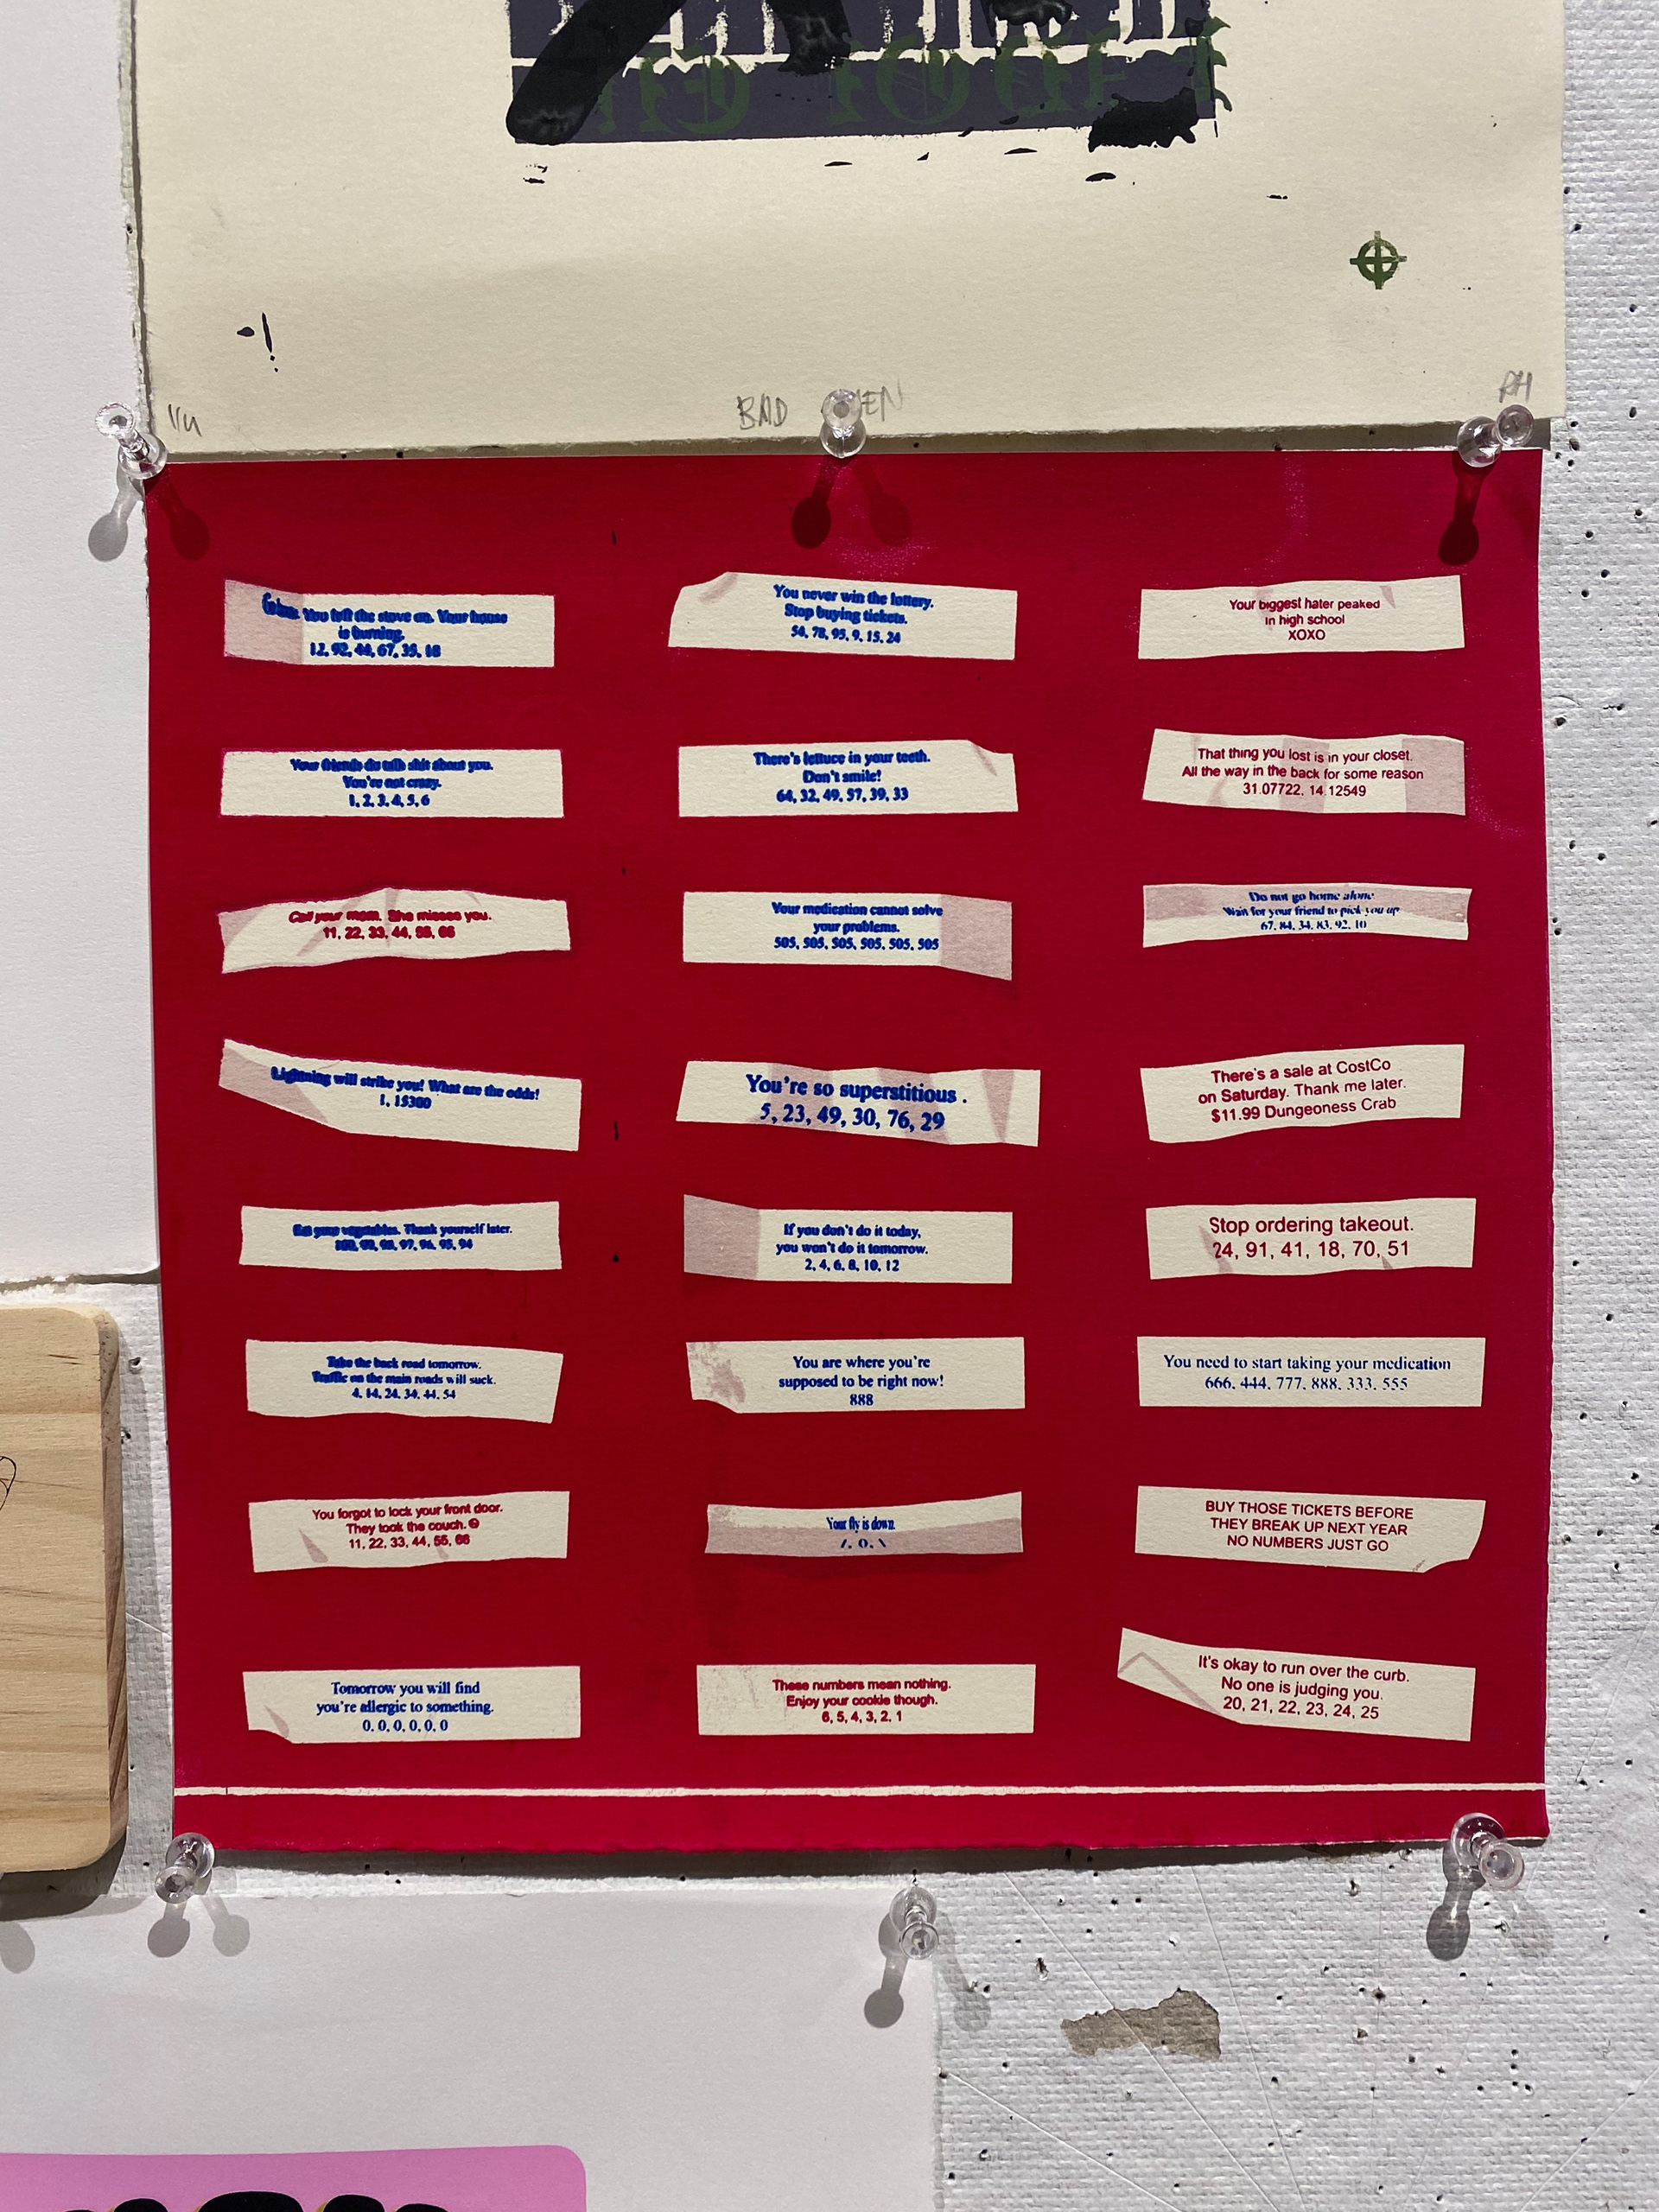 BAD
RH
Go home. You left the stove on. Your house
is burning.
12, 92, 44, 67, 35, 18
You never win the lottery.
Stop buying tickets.
54, 78, 95, 9, 15, 24
Your biggest hater peaked
in high school
XOXO
Your friends do talk shit about you.
You're not crazy.
1, 2, 3, 4, 5, 6
There's lettuce in your teeth.
Don't smile!
64, 32, 49, 57, 39, 33
That thing you lost is in your closet.
All the way in the back for some reason
31.07722, 14.12549
Call your mom. She misses you.
11, 22, 33, 44, 55, 66
Your medication cannot solve
your problems.
505, 505, 505, 505, 505, 505
Do not go home alone
Wait for your friend to pick you up
67, 84, 34, 83, 92, 10
Lightning will strike you! What are the odds!
1, 15300
You're so superstitious .
5, 23, 49, 30, 76, 29
There's a sale at CostCo
on Saturday. Thank me later.
$11.99 Dungeness Crab
Eat your vegetables. Thank yourself later.
100, 99, 98, 97, 96, 95, 94
If you don't do it today,
you won't do it tomorrow.
2, 4, 6, 8, 10, 12
Stop ordering takeout.
24, 91, 41, 18, 70, 51
Take the back road tomorrow.
Traffic on the main roads will suck.
4, 14, 24, 34, 44, 54
You are where you're
supposed to be right now!
888
You need to start taking your medication
666, 444, 777, 888, 333, 555
You forgot to lock your front door.
They took the couch.
11, 22, 33, 44, 55, 66
Your fly is down.
/, 0, \
BUY THOSE TICKETS BEFORE
THEY BREAK UP NEXT YEAR
NO NUMBERS JUST GO
Tomorrow you will find
you're allergic to something.
0, 0, 0, 0, 0, 0
These numbers mean nothing.
Enjoy your cookie though.
6, 5, 4, 3, 2, 1
It's okay to run over the curb.
No one is judging you.
20, 21, 22, 23, 24, 25